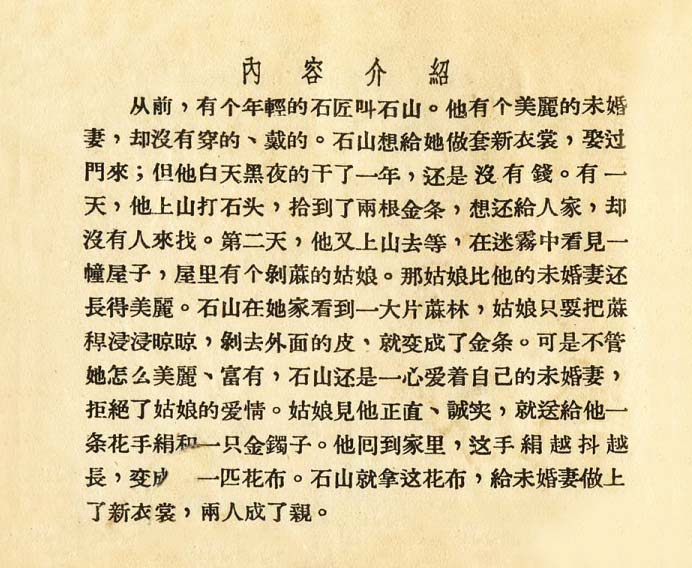 內容介紹
从前，有个年輕的石匠叫石山。他有个美麗的未婚
妻，却沒有穿的、戴的。石山想給她做套新衣裳，娶过
門來；但他白天黑夜的干了一年，还是沒有錢。有一
天，他上山打石头，拾到了兩根金条，想还給人家，却
沒有人來找。第二天，他又上山去等，在迷霧中看見一
幢屋子，屋里有个剝蔴的姑娘。那姑娘比他的未婚妻还
長得美麗。石山在她家看到一大片蔴林，姑娘只要把蔴
稈浸浸晾晾，剝去外面的皮、就变成了金条。可是不管
她怎么美麗、富有，石山还是一心爱着自己的未婚妻，
拒絕了姑娘的爱情。姑娘見他正直、誠实，就送給他一
条花手絹和一只金鐲子。他回到家里，这手絹越抖越
長，变成 一匹花布。石山就拿这花布，給未婚妻做上
了新衣裳，兩人成了親。